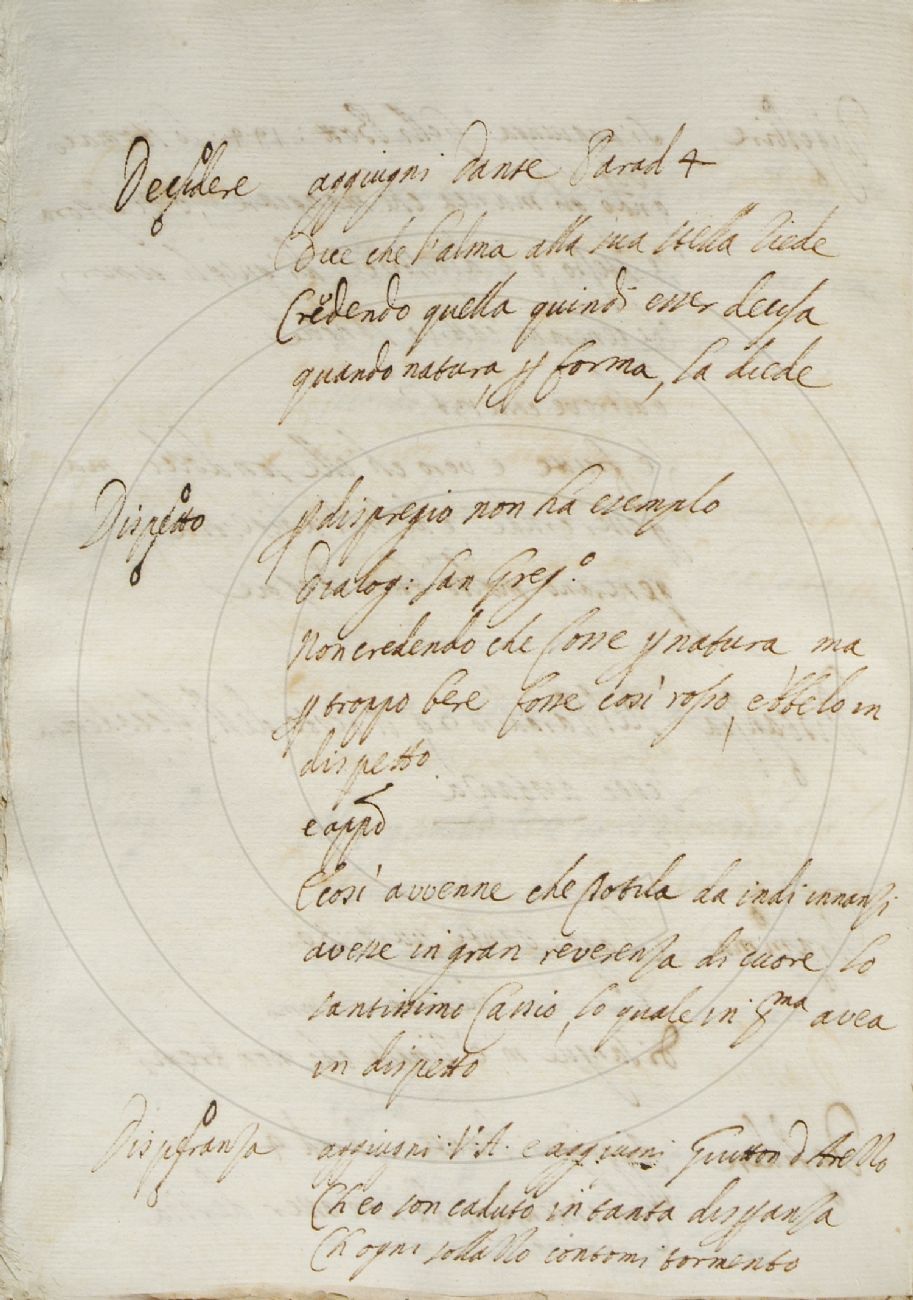 Decidere aggiugni Dante Parad 4
Dice che l'alma alla sua stella riede
Credendo quella quindi esser decisa
quando natura, p forma, la diede
Dispetto p dispregio non ha esemplo
Dialog: San Greg.o
Non credendo che fosse p natura ma
p troppo bere fosse così rosso, ebbelo in
dispetto
e app̃o
E così avvenne che Totila da indi innanzi
avesse in gran reverenza di cuore lo
santissimo Cassio, lo quale in p.ma avea
in dispetto
Disperanza aggiugni V.A. e aggiugni Guitton d Arezzo
Ch eo son caduto in tanta dispanza
Ch ogni sollazzo contomi tormento